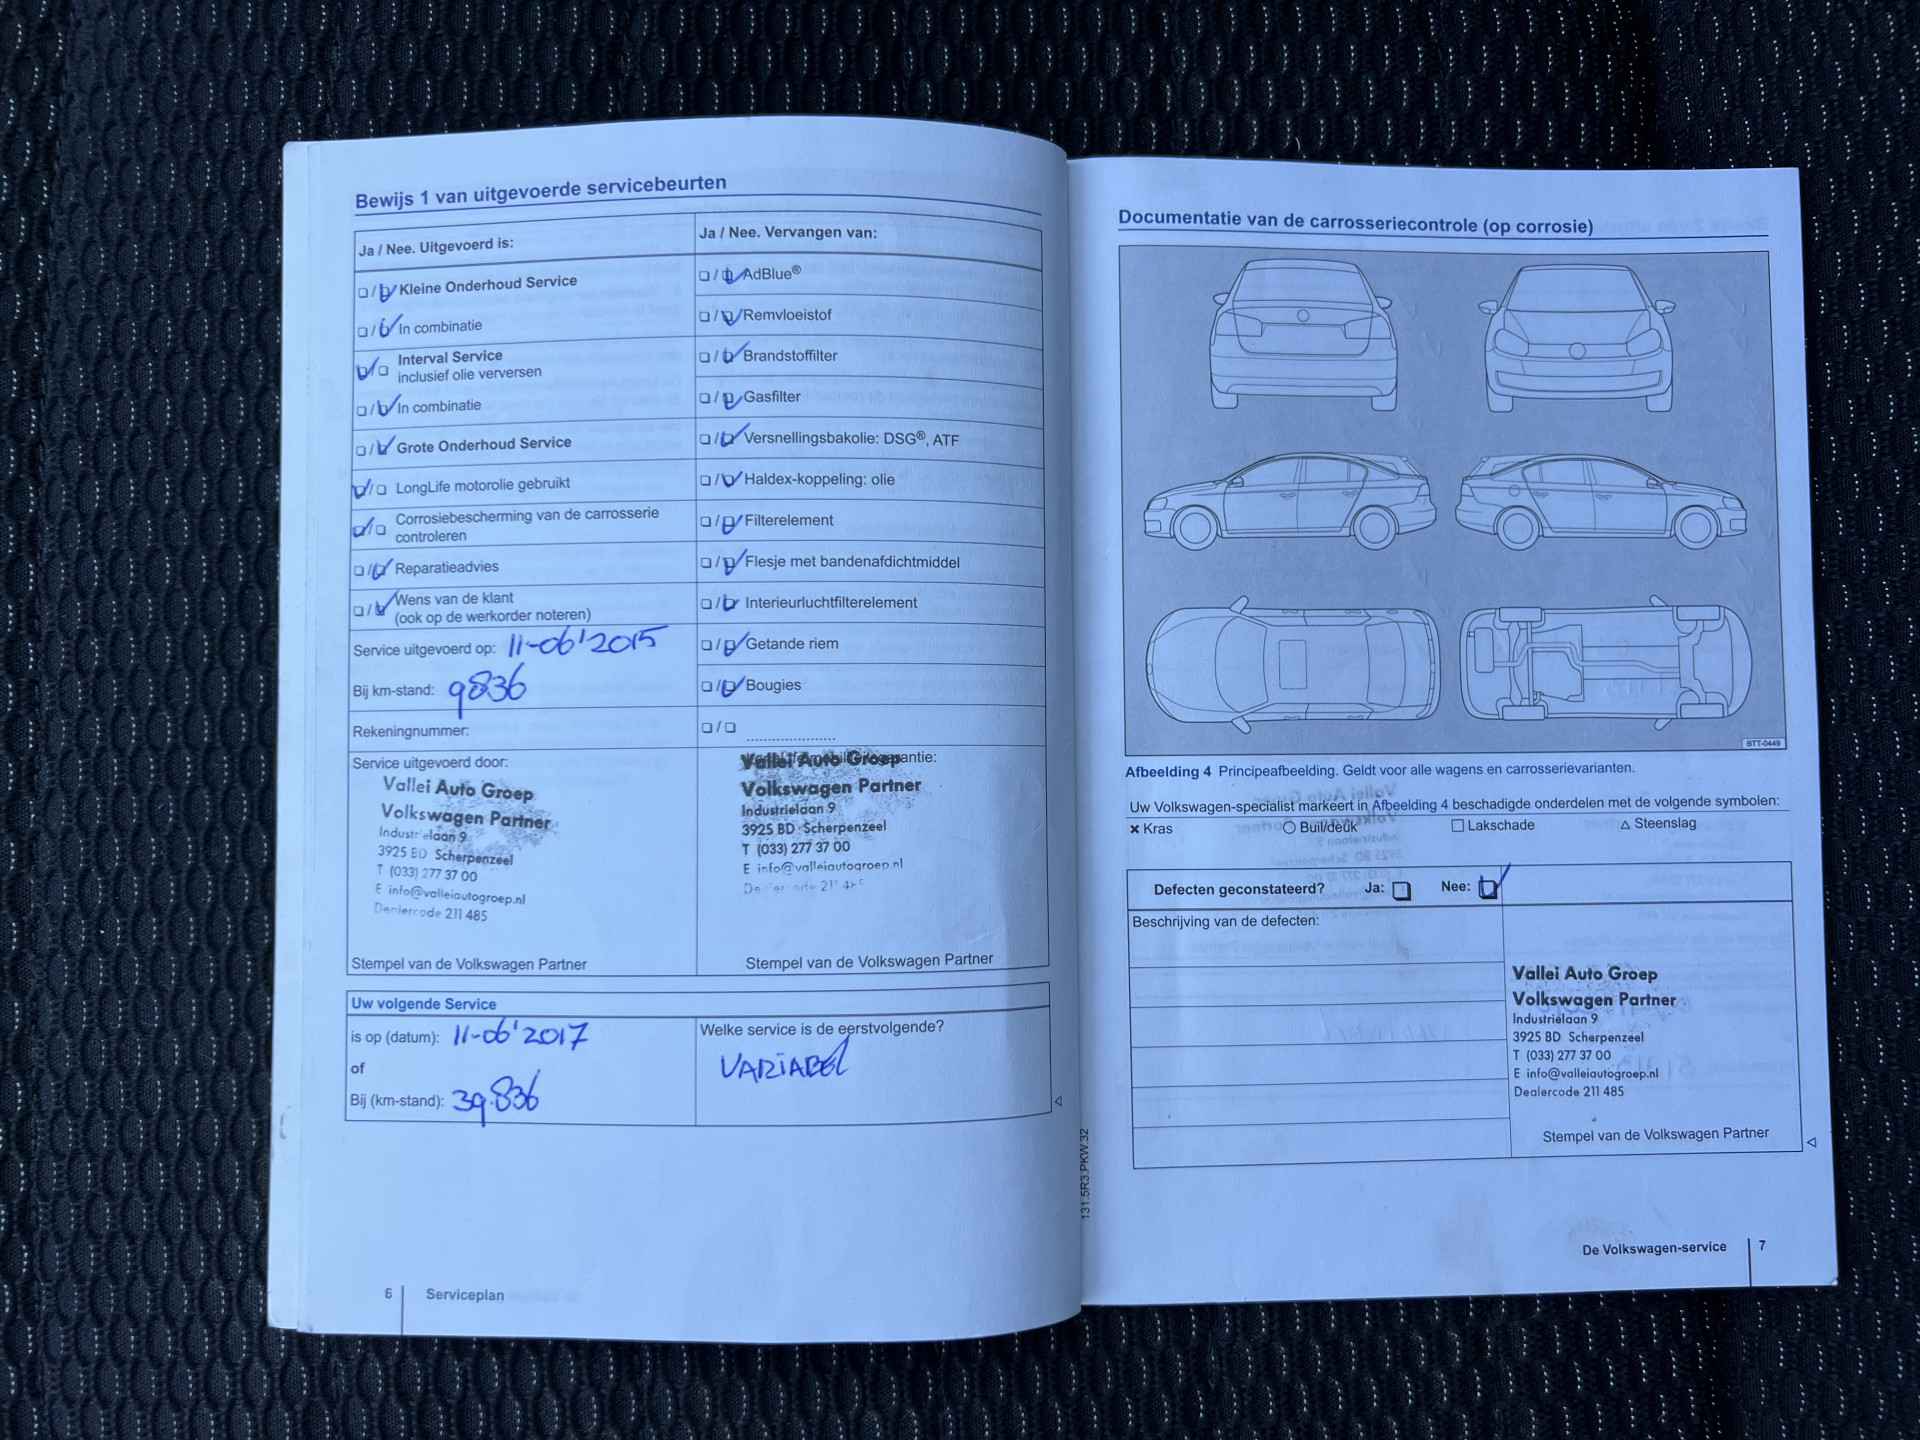 Bewijs 1 van uitgevoerde servicebeurten
Ja / Nee. Uitgevoerd is:
Kleine Onderhoud Service
In combinatie
Interval Service
inclusief olie verversen
In combinatie
Grote Onderhoud Service
LongLife motorolie gebruikt
Corrosiebescherming van de carrosserie
controleren
Reparatieadvies
Wens van de klant
(ook op de werkorder noteren)
Service uitgevoerd op: 11-06'2015
Bij km-stand: 9836
Rekeningnummer:
Service uitgevoerd door:
Vallei Auto Groep
Volkswagen Partner
Industrielaan 9
3925 BD Scherpenzeel
T (033) 277 37 00
E info@valleiautogroep.nl
Dealercode 211 485
Stempel van de Volkswagen Partner
Ja / Nee. Vervangen van:
AdBlue®
Remvloeistof
Brandstoffilter
Gasfilter
Versnellingsbakolie: DSG®, ATF
Haldex-koppeling: olie
Filterelement
Flesje met bandenafdichtmiddel
Interieurluchtfilterelement
Getande riem
Bougies
Vallei Auto Groep
Volkswagen Partner
Industrielaan 9
3925 BD Scherpenzeel
T (033) 277 37 00
E info@valleiautogroep.nl
Stempel van de Volkswagen Partner
Uw volgende Service
is op (datum): 11-06'2017
of
Bij (km-stand): 39.836
Welke service is de eerstvolgende?
VARIABEL
6 Serviceplan
131.5R3.PKW.32
Documentatie van de carrosseriecontrole (op corrosie)
BTT-0449
Afbeelding 4 Principeafbeelding. Geldt voor alle wagens en carrosserievarianten.
Uw Volkswagen-specialist markeert in Afbeelding 4 beschadigde onderdelen met de volgende symbolen:
Kras Buil/deuk Lakschade Steenslag
Defecten geconstateerd? Ja: Nee:
Beschrijving van de defecten:
Vallei Auto Groep
Volkswagen Partner
Industrielaan 9
3925 BD Scherpenzeel
T (033) 277 37 00
E info@valleiautogroep.nl
Dealercode 211 485
Stempel van de Volkswagen Partner
De Volkswagen-service 7